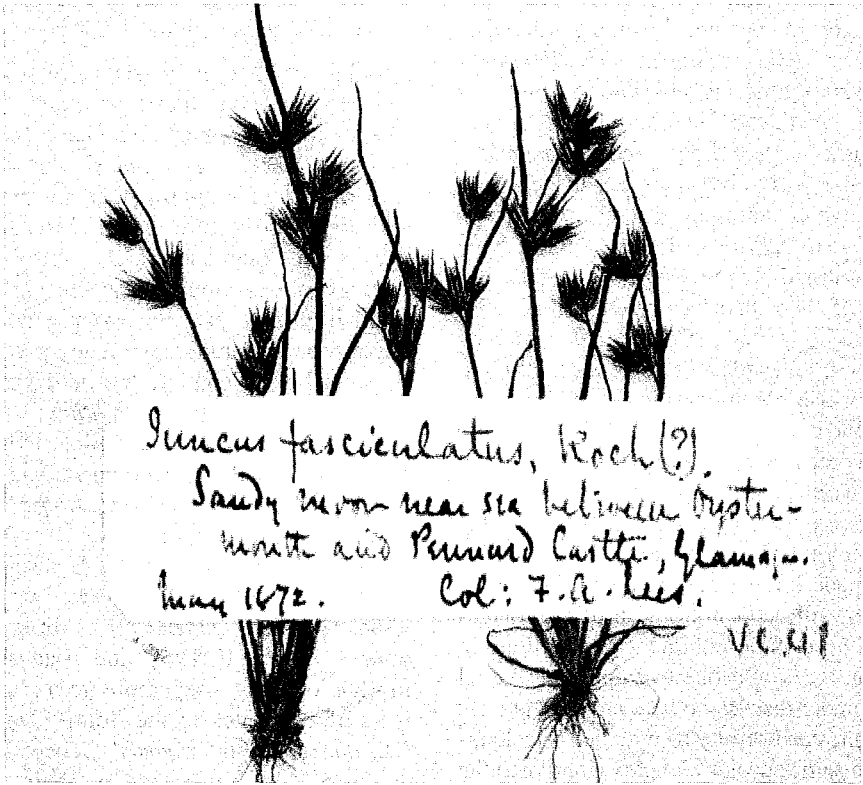 Juncus fasciculatus, Koch (?).
Sandy moor near sea between Oyster-
mouth and Pennard Castle, Glamorgan.
May 1872. Col: F. A. Lees.
VC.41